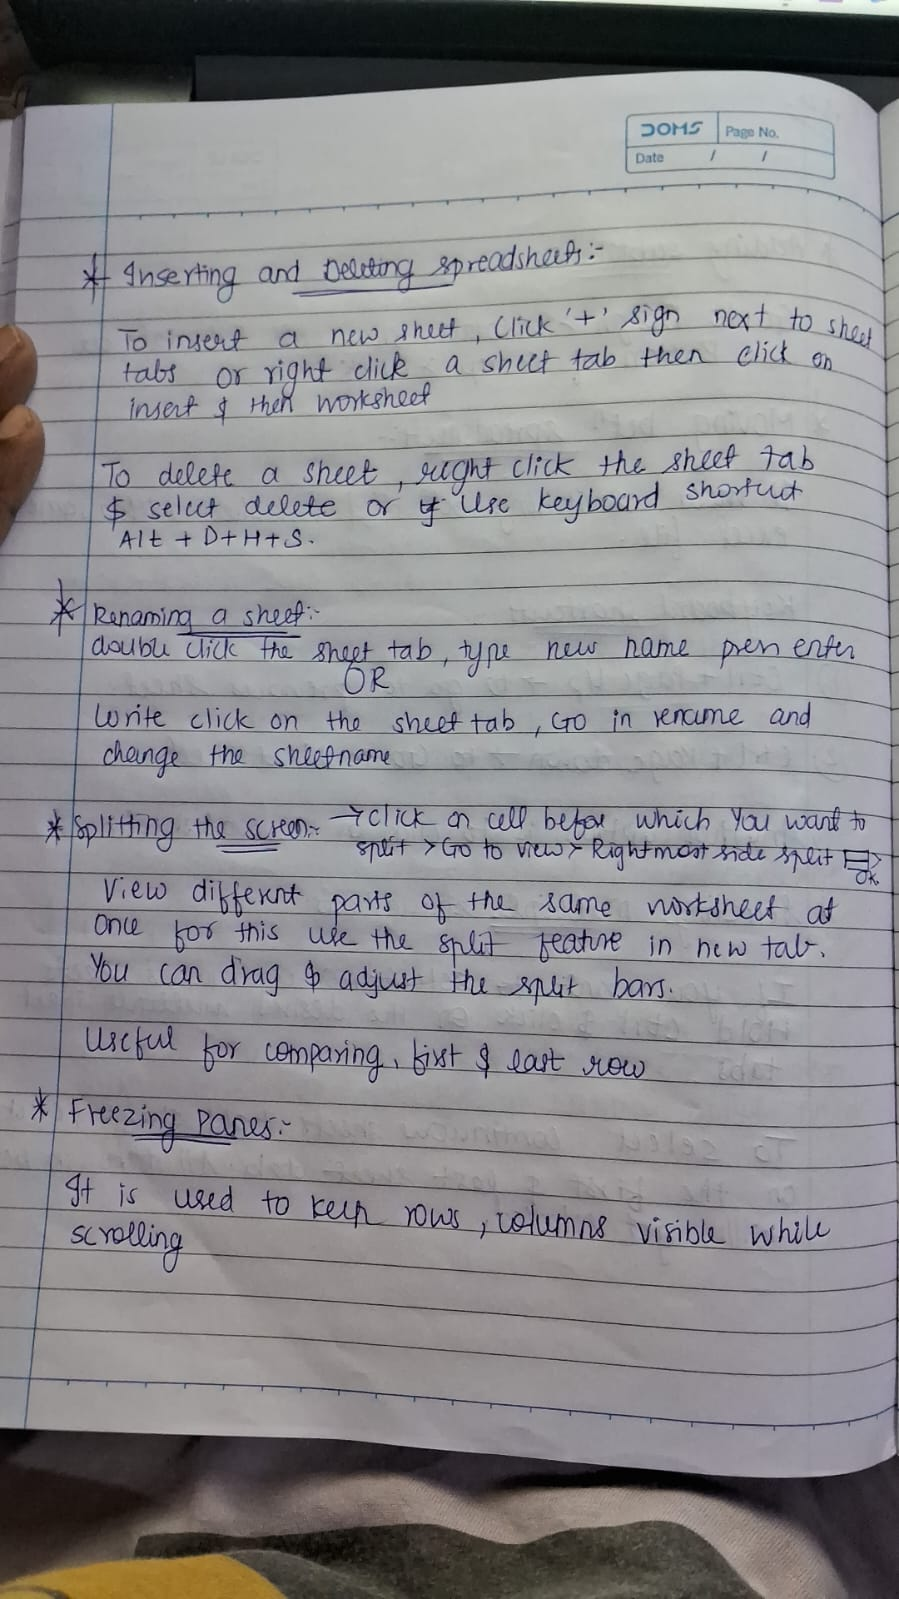 DOMS
Page No.
Date / /
* Inserting and Deleting spreadsheets:-
To insert a new sheet, Click '+' sign next to sheet
tabs or right click a sheet tab then click on
insert & then worksheet
To delete a sheet, right click the sheet tab
& select delete or Use keyboard shortcut
Alt + D+H+S.
* Renaming a sheet:-
double click the sheet tab, type new name press enter
OR
Write click on the sheet tab, Go in rename and
change the sheetname
* Splitting the screen:- → click on cell before which You want to
split > Go to view > Rightmost side split
OK
View different parts of the same worksheet at
once for this use the split feature in new tab.
You can drag & adjust the split bars.
Useful for comparing, first & last row
* Freezing Panes:-
It is used to keep rows, columns visible while
scrolling